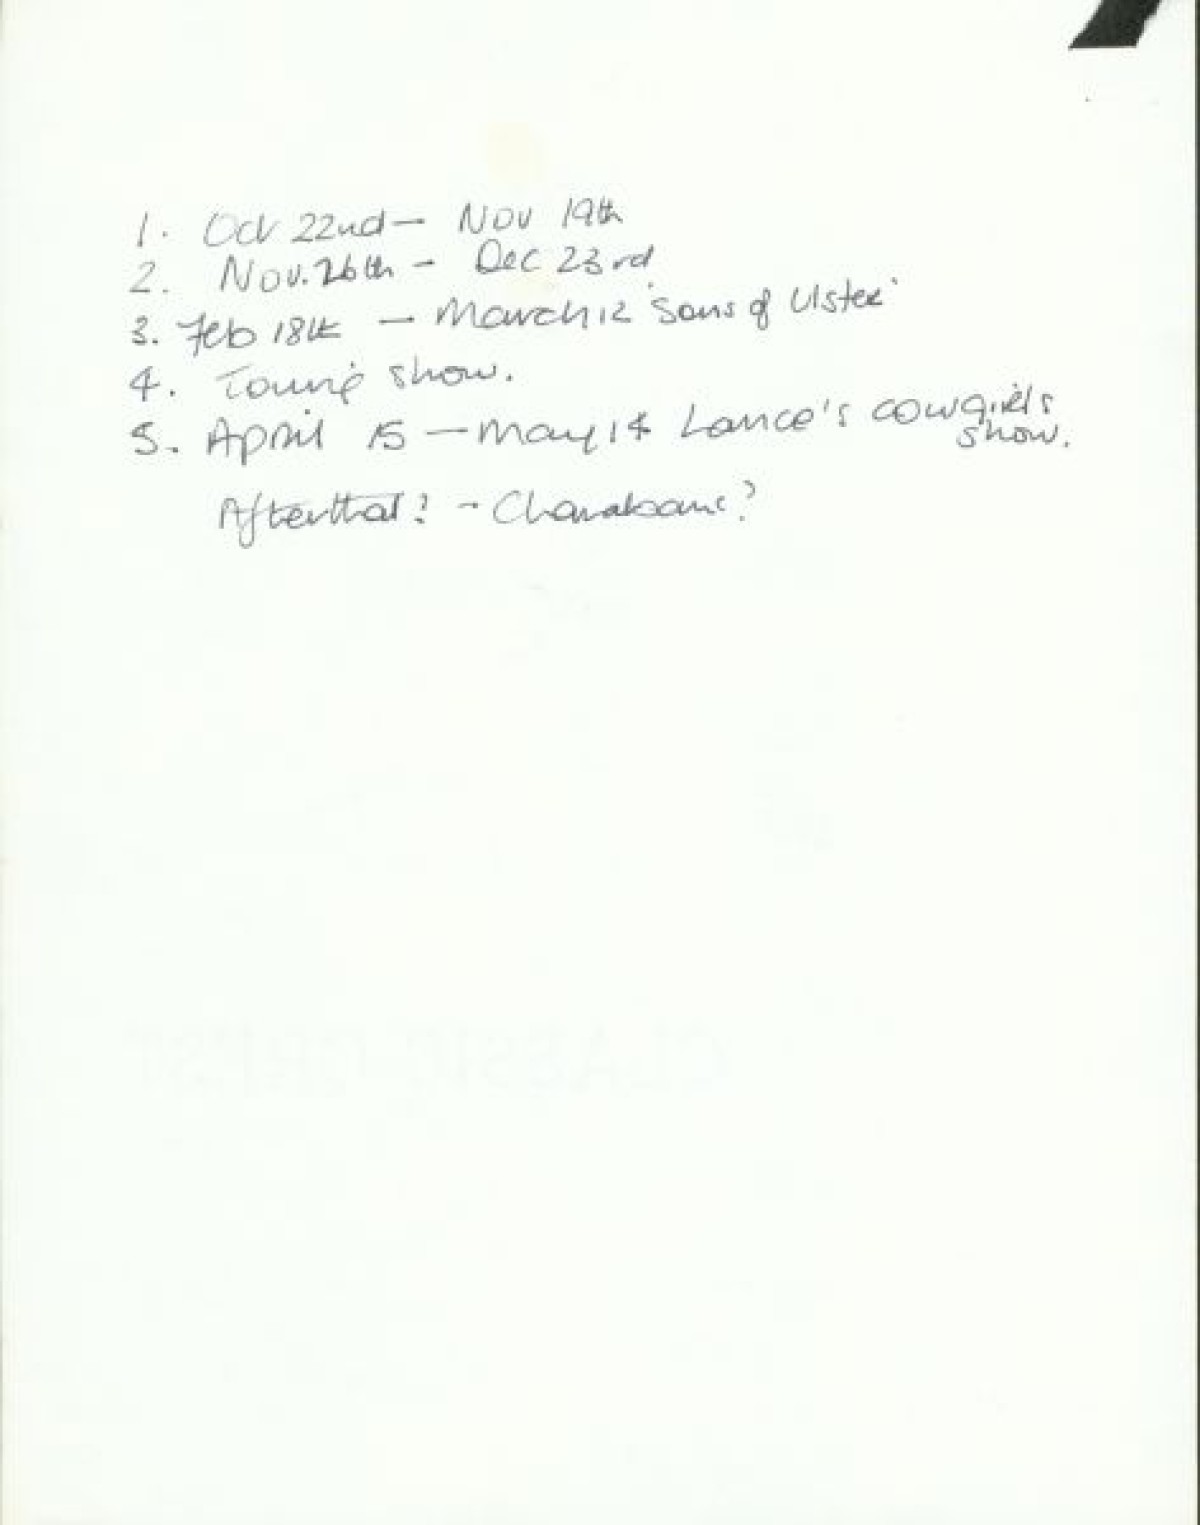 1. Oct 22nd — Nov 19th
2. Nov. 26th - Dec 23rd
3. Feb 18th — March 12 'Sons of Ulster'
4. Touring show.
5. April 15 — May 14 Lance's cowgirls
show.
After that? - Charabanc?